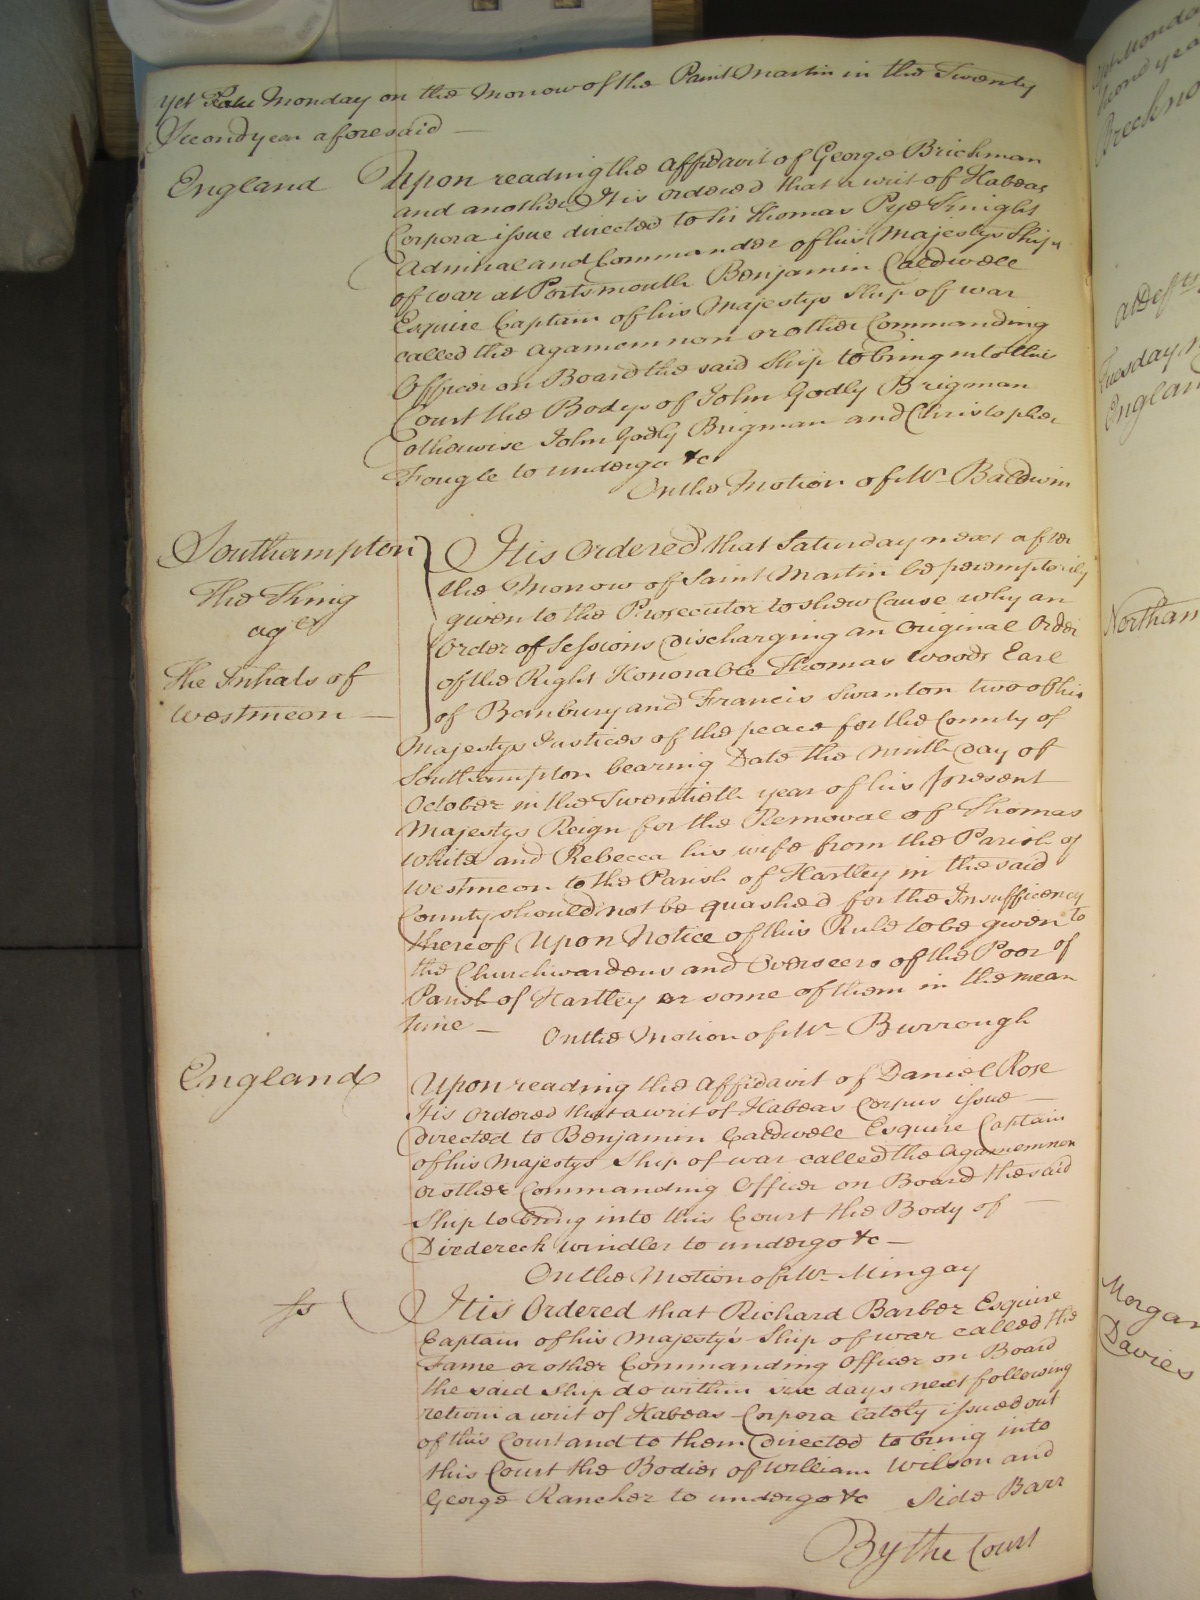 yet Monday on the Morrow of the Saint Martin in the Twenty
Second year aforesaid —
England
Upon reading the Affidavit of George Brickman
and another It is ordered that a writ of Habeas
Corpora issue directed to Sir Thomas Pye Knight
Admiral and Commander of his Majestys Ships
of war at Portsmouth Benjamin Caldwell
Esquire Captain of his Majestys Ship of war
called the Agamemnon or other Commanding
Officer on Board the said Ship to bring into this
Court the Bodys of John Godly Brigman
otherwise John Godly Brigman and Christopher
Fougle to undergo &c
On the Motion of Mr Baldwin
Southampton
The King
agt
The Inhats of
Westmeon —
It is Ordered that Saturday next after
the Morrow of Saint Martin be peremptorily
given to the Prosecutor to shew Cause why an
Order of Sessions discharging an Original Order
of the Right Honorable Thomas Woods Earl
of Banbury and Francis Swanton two of his
Majestys Justices of the peace for the County of
Southampton bearing Date the ninth day of
October in the Twentieth year of his present
Majestys Reign for the Removal of Thomas
White and Rebecca his wife from the Parish of
Westmeon to the Parish of Hartley in the said
County should not be quashed for the Insufficiency
thereof Upon Notice of this Rule to be given to
the Churchwardens and Overseers of the Poor of
Parish of Hartley or some of them in the mean
time —
On the Motion of Mr Burrough
England
Upon reading the Affidavit of Daniel Rose
It is Ordered that a writ of Habeas Corpus issue —
directed to Benjamin Caldwell Esquire Captain
of his Majestys Ship of war called the Agamemnon
or other Commanding Officer on Board the said
Ship to bring into this Court the Body of —
Diedereck Windler to undergo &c —
On the Motion of Mr Mingay
It is Ordered that Richard Barber Esquire
Captain of his Majesty's Ship of war called the
Fame or other Commanding Officer on Board
the said Ship do within six days next following
return a writ of Habeas Corpora lately issued out
of this Court and to them directed to bring into
this Court the Bodies of William Wilson and
George Rancher to undergo &c Side Barr
By the Court
Tuesday
England
Northam
Morgan
Davies